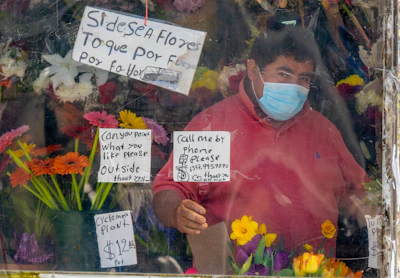 Sidesea Flores
Toque por F
por Favor
can you point
what you
like please
outside
thank you
Call me by
phone
please
thank you
Cyclemen
plant
$12.00
Pot